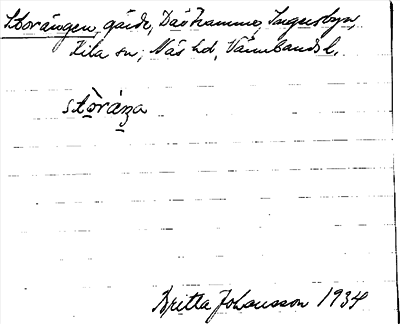 Storängen, gärde, Där framme, Ingersbyn,
Lila sn, Näs hd, Värmlands l.
stòráŋa
Britta Johansson 1934